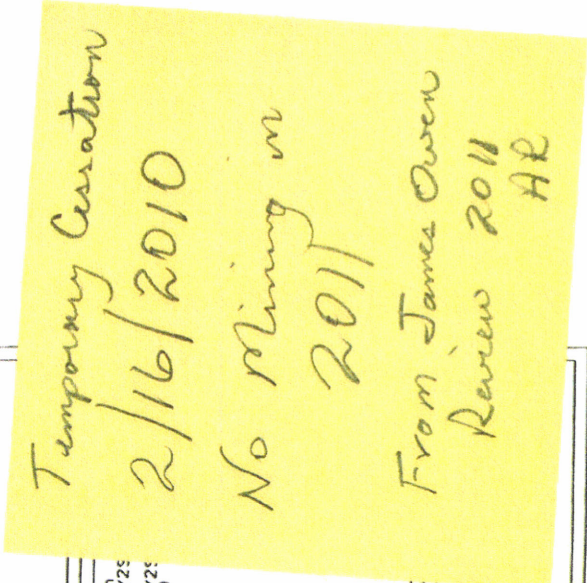 Temporary Cessation
2/16/2010
No Mining in
2011
From James Owen
Review 2011
AR